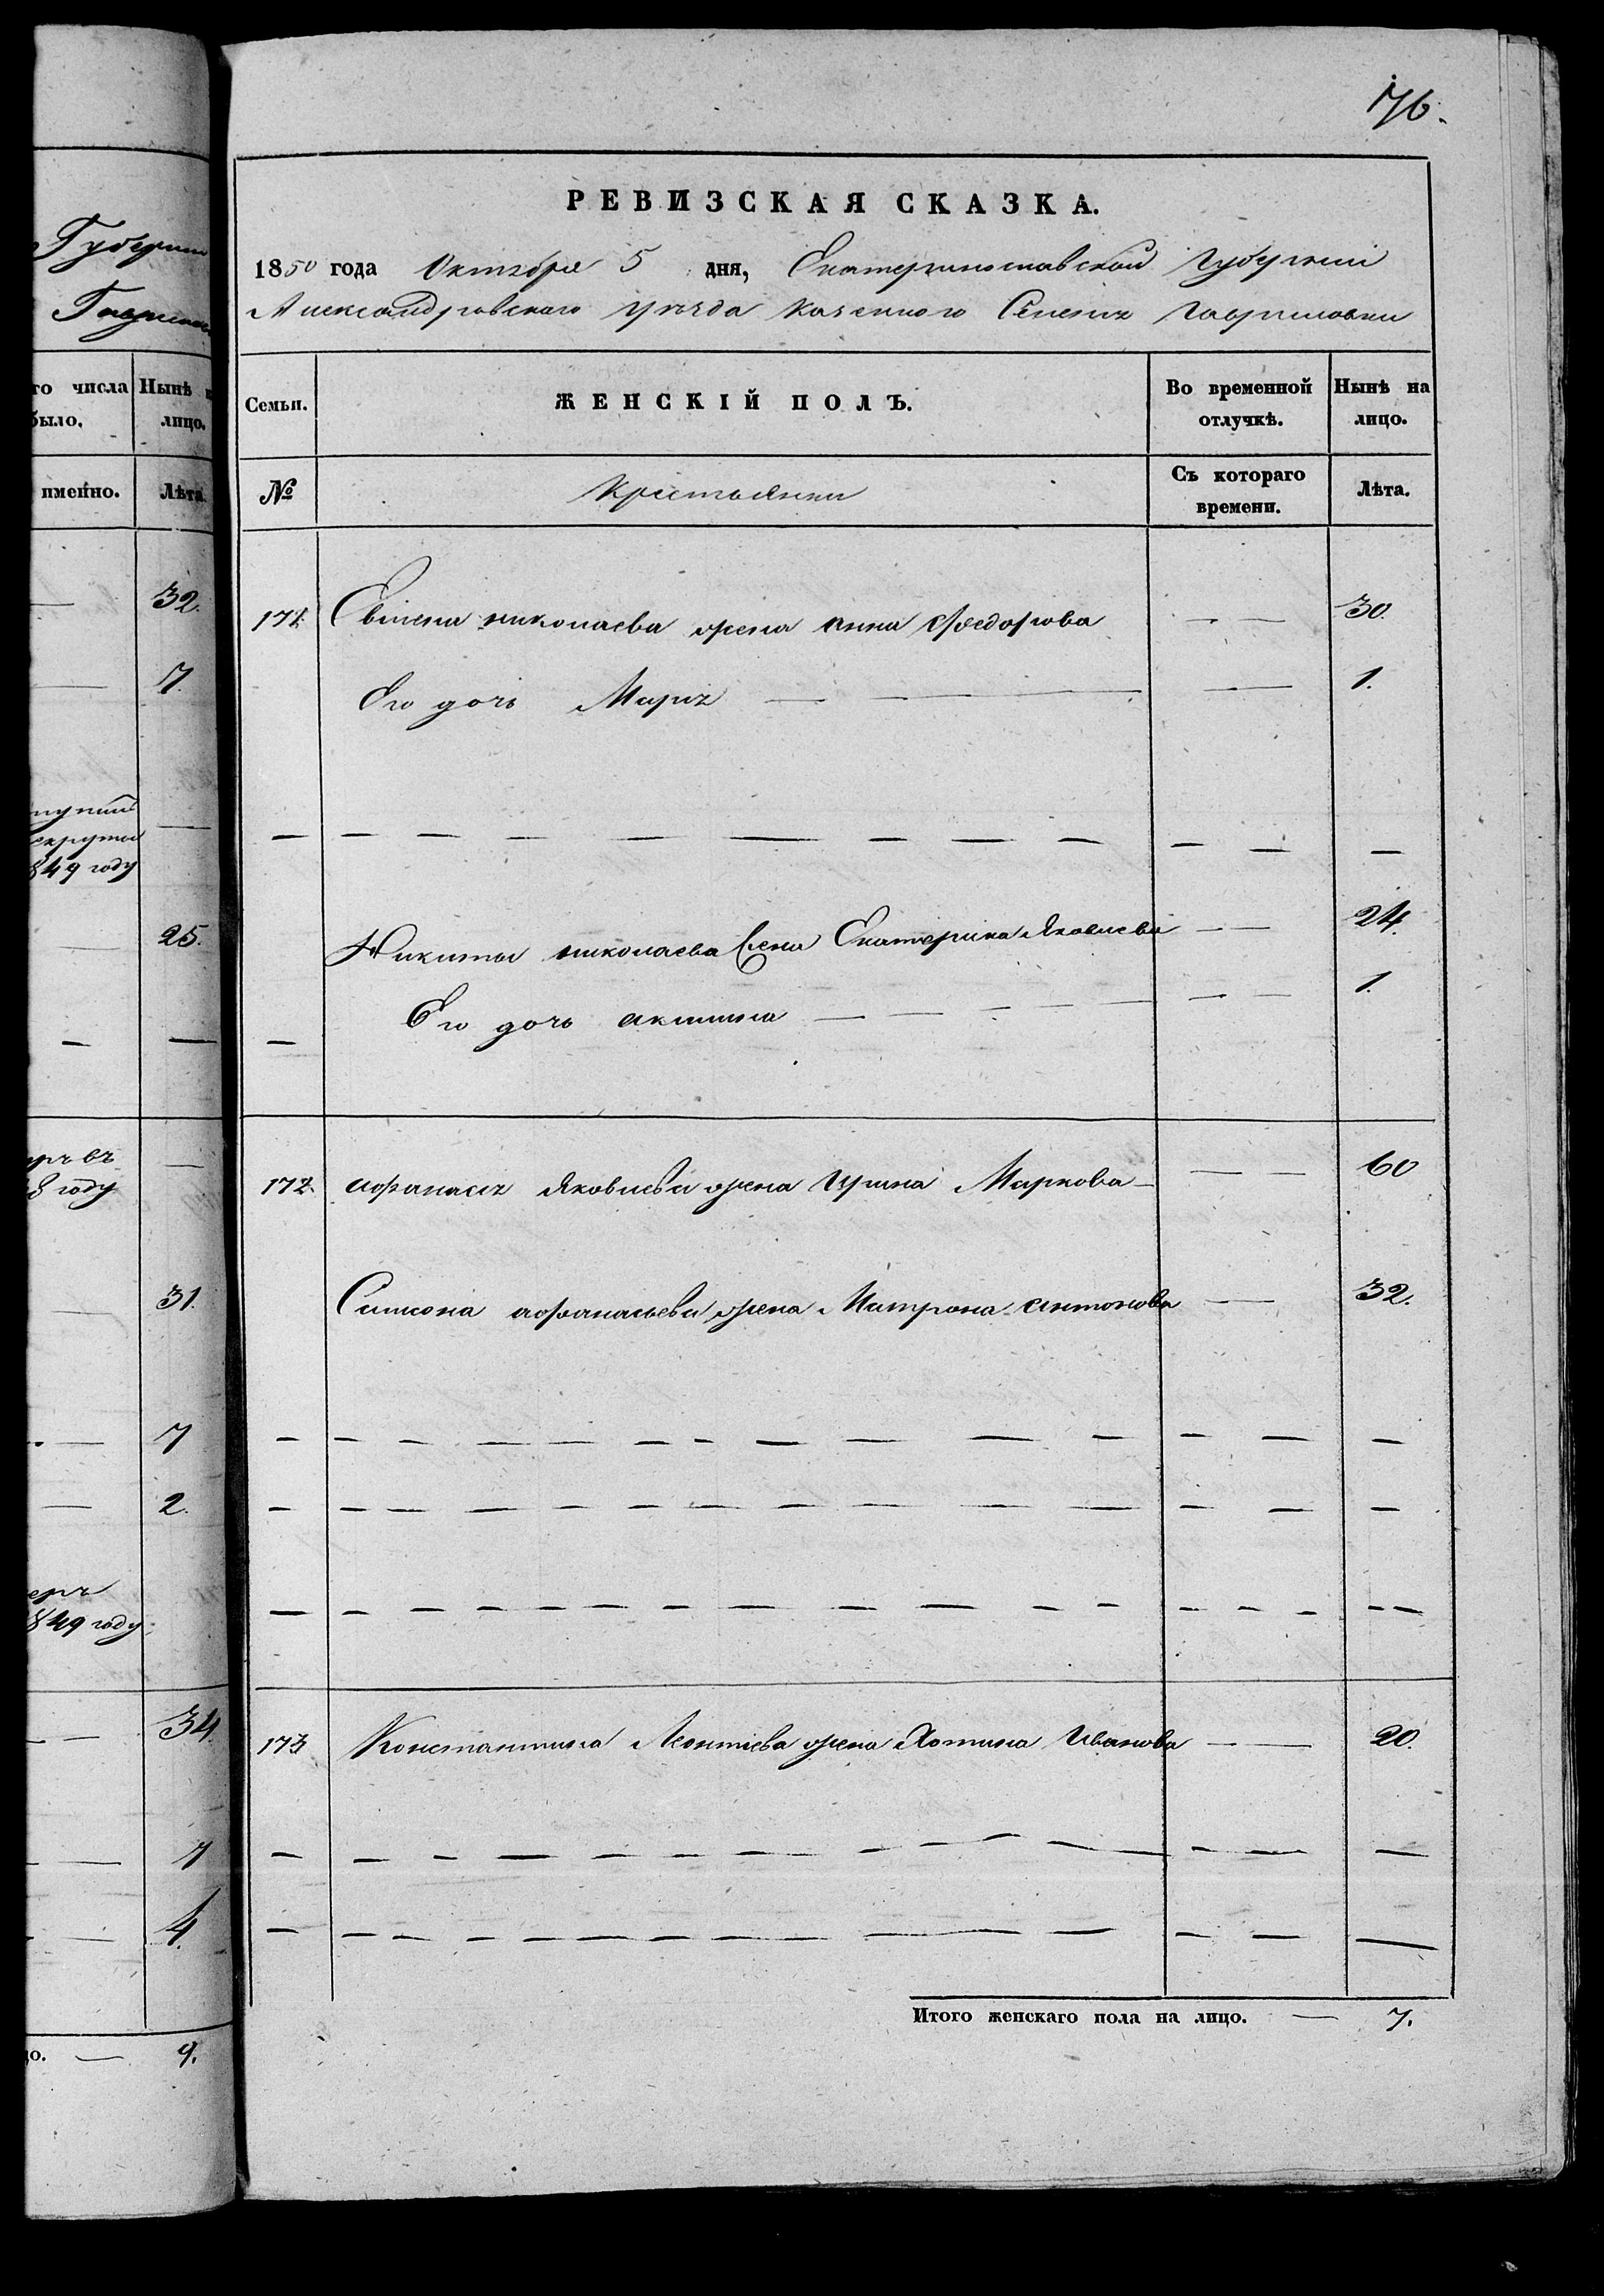 Губерніи
Гаврилов
го числа
было.
Нынѣ н
лицо.
именно.
Лѣта
32.
7.
849 году
25.
—
въ
8 году
31.
7
2.
849 году
34.
7
4.
цо. — 9.
176.
РЕВИЗСКАЯ СКАЗКА.
1850 года Октября 5 дня, Екатеринославской Губерніи
Александровскаго уѣзда казенного Селенія Гавриловки
Семьи. ЖЕНСКІЙ ПОЛЪ. Во временной отлучкѣ. Нынѣ на лицо.
№ Крестьянки Съ котораго времени. Лѣта.
171. николаева жена анна федорова — — 30.
Его дочь Марія — — — 1.
Никиты николаева жена Екатерина Яковлева — — 24.
Его дочь акилина — — — 1.
172. афанасія Яковлева жена Ирина Маркова — — 60
Самсона афанасьева жена Матрона антонова — — 32.
173 Константина Леонтіева жена Иванова — — 20.
Итого женскаго пола на лицо. — 7.